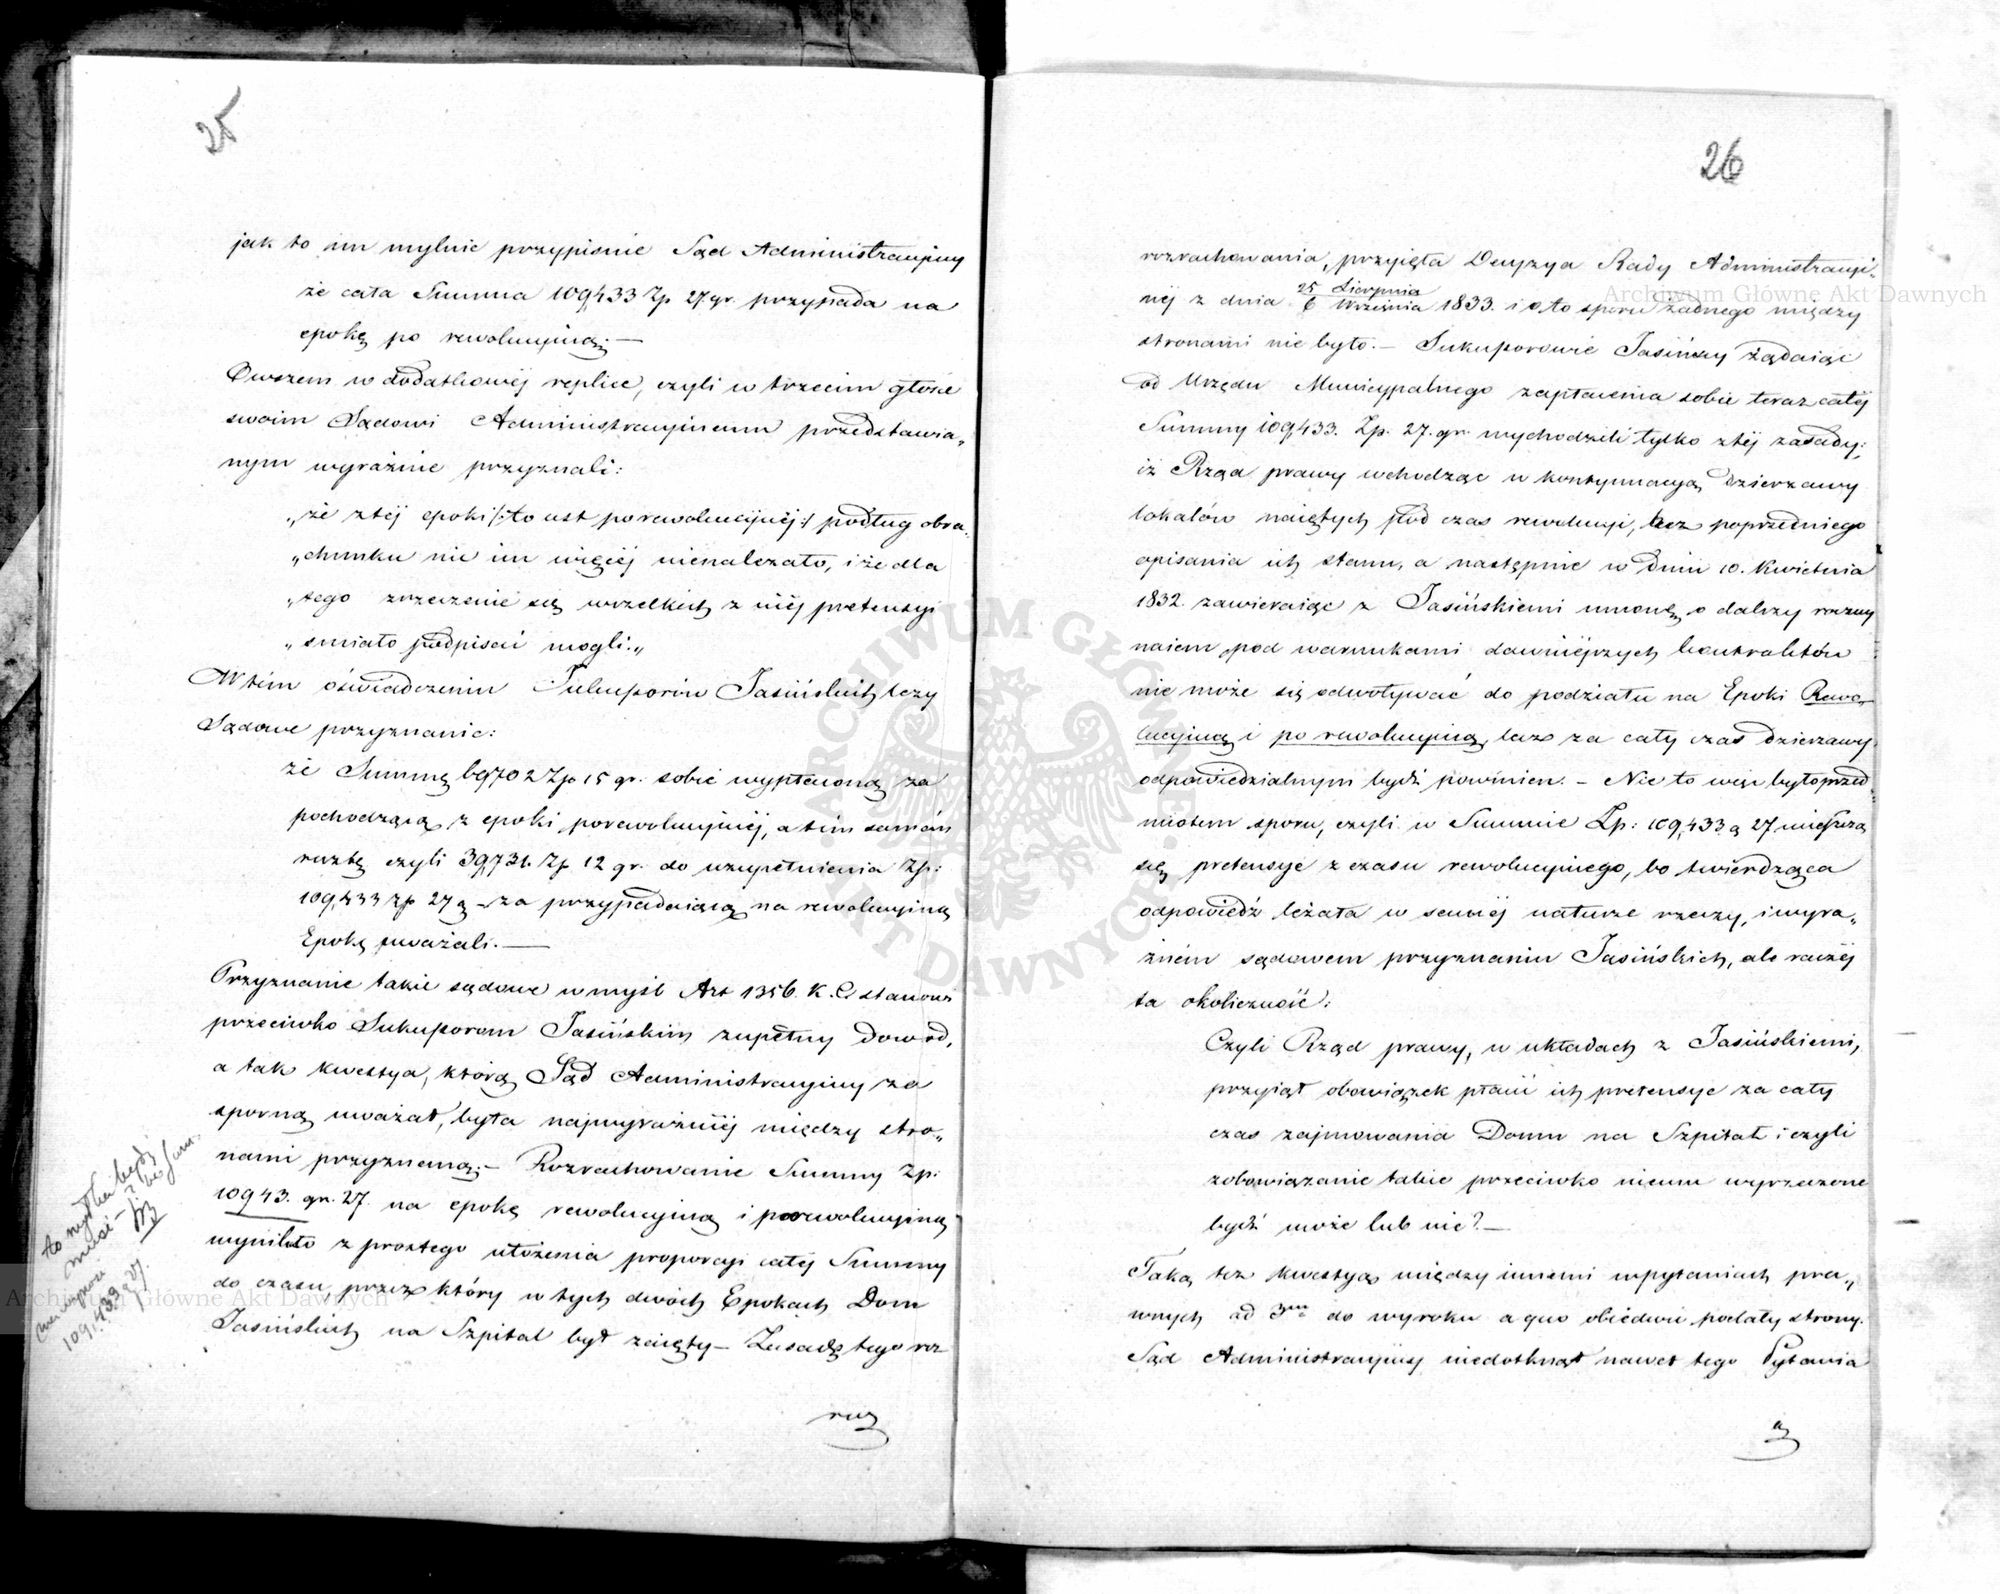 25
jak to im mylnie przypisuie Sąd Administracyjny
że cała Summa 109,433 Zp 27 gr. przypada na
epokę po rewolucyiną. —
Owszem w dodatkowéj replice, czyli w trzecim głosie
swoim Sądowi Administracyinemu przedstawia„
nym wyraźnie przyznali:
„że z téj epoki /: to iest porewolucyinéj :/ podług obra„
„chunku nic im więcéj nienależało, i że dla
„tego zrzeczenie się wszelkich z niéj pretensyi
„smiało podpisać mogli.„
W tém oświadczeniu Sukcessorów Jasińskich leży
Sądowe przyznanie:
że Summę 69,702 Zp 15 gr. sobie wypłaconą za
pochodzącą z epoki porewolucyinéj, a tém samém
resztę czyli 39,731 Zp 12 gr. do uzupełnienia Zp:
109,433 zp 27 g – za przypadaiącą na rewolucyiną
Epokę uważali. —
Przyznanie takie sądowe w myśl Art 1356. K. C stanowi
przeciwko Sukcessorom Jasińskim zupełny dowód,
a tak kwestya, którą Sąd Administracyiny za
sporną uważał, była najwyraźniéj między stro„
nami przyznaną. – Rozrachowanie Summy Zp:
10943. gr. 27. na epokę rewolucyiną i porewolucyiną
wynikło z prostego ułożenia proporcyi całéj Summy
do czasu, przez który w tych dwóch Epokach Dom
Jasińskich na Szpital był zaięty – Zasadę tego roz
roz
to mylka bydź
musi –
109,433 g 27.
26
rozrachowania, przyięła Decyzya Rady Administracyi„
néj z dnia 25 Sierpnia
6 Września 1833. i o to sporu żadnego między
stronami nie było. – Sukcessorowie Jasińscy żądaiąc
od Urzędu Municypalnego zapłacenia sobie teraz całéj
Summy 109,433. Zp. 27. gr. wychodzili tylko z téj zasady;
iż Rząd prawy wchodząc w kontynuacyą dzierżawy
lokalów naiętych pod czas rewolucyi, bez poprzedniego
opisania ich stanu, a następnie w dniu 10. Kwietnia
1832. zawieraiąc z Jasińskiemi umowę o dalszy roczny
naiem pod warunkami dawniéjszych kontraktów
nie może się odwoływać do podziału na Epoki Rewo„
lucyiną i po rewolucyiną, lecz za cały czas dzierżawy
odpowiedzialnym bydź powinien. – Nie to więc było przed„
miotem sporu, czyli w Summie Zp: 109,433. g 27 mieszczą
się pretensye z czasu rewolucyinego, bo twierdząca
odpowiedź leżała w saméj naturze rzeczy, i wyra„
źném sądowem przyznaniu Jasińskich, ale raczéj
ta okoliczność:
Czyli Rząd prawy, w układach z Jasińskiemi,
przyiął obowiązek płacić ich pretensye za cały
czas zajmowania Domu na Szpital i czyli
zobowiązanie takie przeciwko niemu wyrzeczone
bydź może lub nie? —
Taką też kwestyą między innemi w pytaniach pra„
wnych ad 3um do wyroku a quo obiedwie podały strony.
Sąd Administracyiny niedotknął nawet tego Pytania
a
Archiwum Główne Akt Dawnych
Archiwum Główne Akt Dawnych
ARCHIWUM GŁÓWNE AKT DAWNYCH